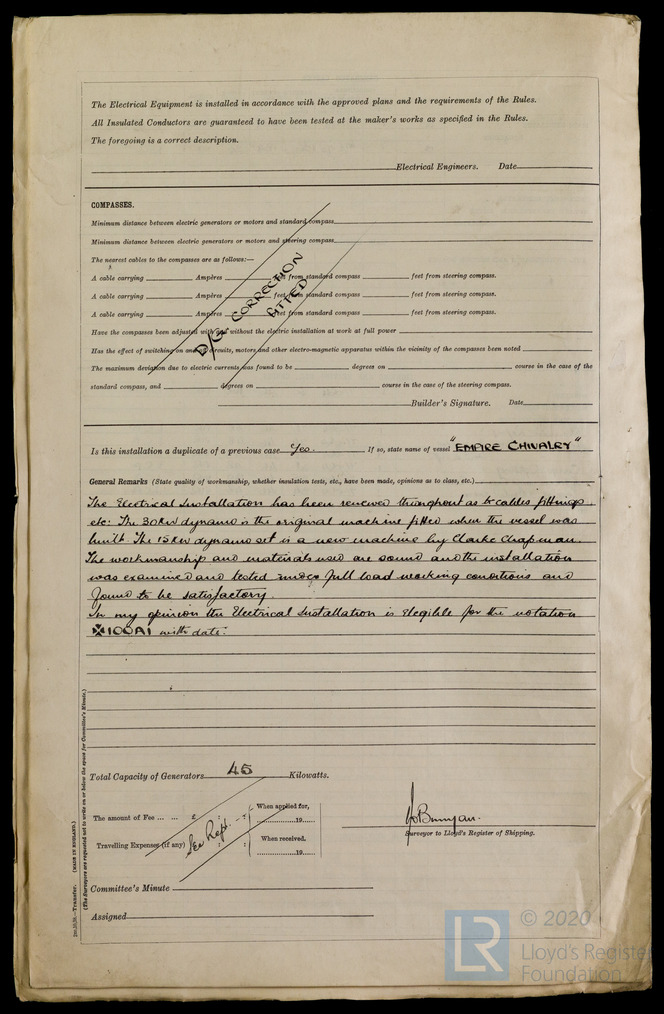 The Electrical Equipment is installed in accordance with the approved plans and the requirements of the Rules.
All Insulated Conductors are guaranteed to have been tested at the maker's works as specified in the Rules.
The foregoing is a correct description.
Electrical Engineers. Date
COMPASSES.
Minimum distance between electric generators or motors and standard compass
Minimum distance between electric generators or motors and steering compass
The nearest cables to the compasses are as follows:—
A cable carrying Ampères feet from standard compass feet from steering compass.
A cable carrying Ampères feet from standard compass feet from steering compass.
A cable carrying Ampères feet from standard compass feet from steering compass.
D/G CORRECTION
FITTED
Have the compasses been adjusted with and without the electric installation at work at full power
Has the effect of switching on and off circuits, motors and other electro-magnetic apparatus within the vicinity of the compasses been noted
The maximum deviation due to electric currents was found to be degrees on course in the case of the
standard compass, and degrees on course in the case of the steering compass.
Builder's Signature. Date
Is this installation a duplicate of a previous case Yes. If so, state name of vessel "EMPIRE CHIVALRY"
General Remarks (State quality of workmanship, whether insulation tests, etc., have been made, opinions as to class, etc.)
The Electrical Installation has been renewed throughout as to cables fittings
etc: The 30KW dynamo is the original machine fitted when the vessel was
built. The 15KW dynamo set is a new machine by Clarke Chapman.
The workmanship and materials used are sound and the installation
was examined and tested under full load working conditions and
found to be satisfactory.
In my opinion the Electrical Installation is elegible for the notation
✠100A1 with date.
Total Capacity of Generators 45 Kilowatts.
The amount of Fee ... ... £ : : When applied for,
19
Travelling Expenses (if any) : : When received,
19
See Rept.
JoBunyan.
Surveyor to Lloyd's Register of Shipping.
Committee's Minute
Assigned
Transfer. (MADE IN ENGLAND.)
(The Surveyors are requested not to write on or below the space for Committee's Minute.)
LR © 2020
Lloyd's Register
Foundation